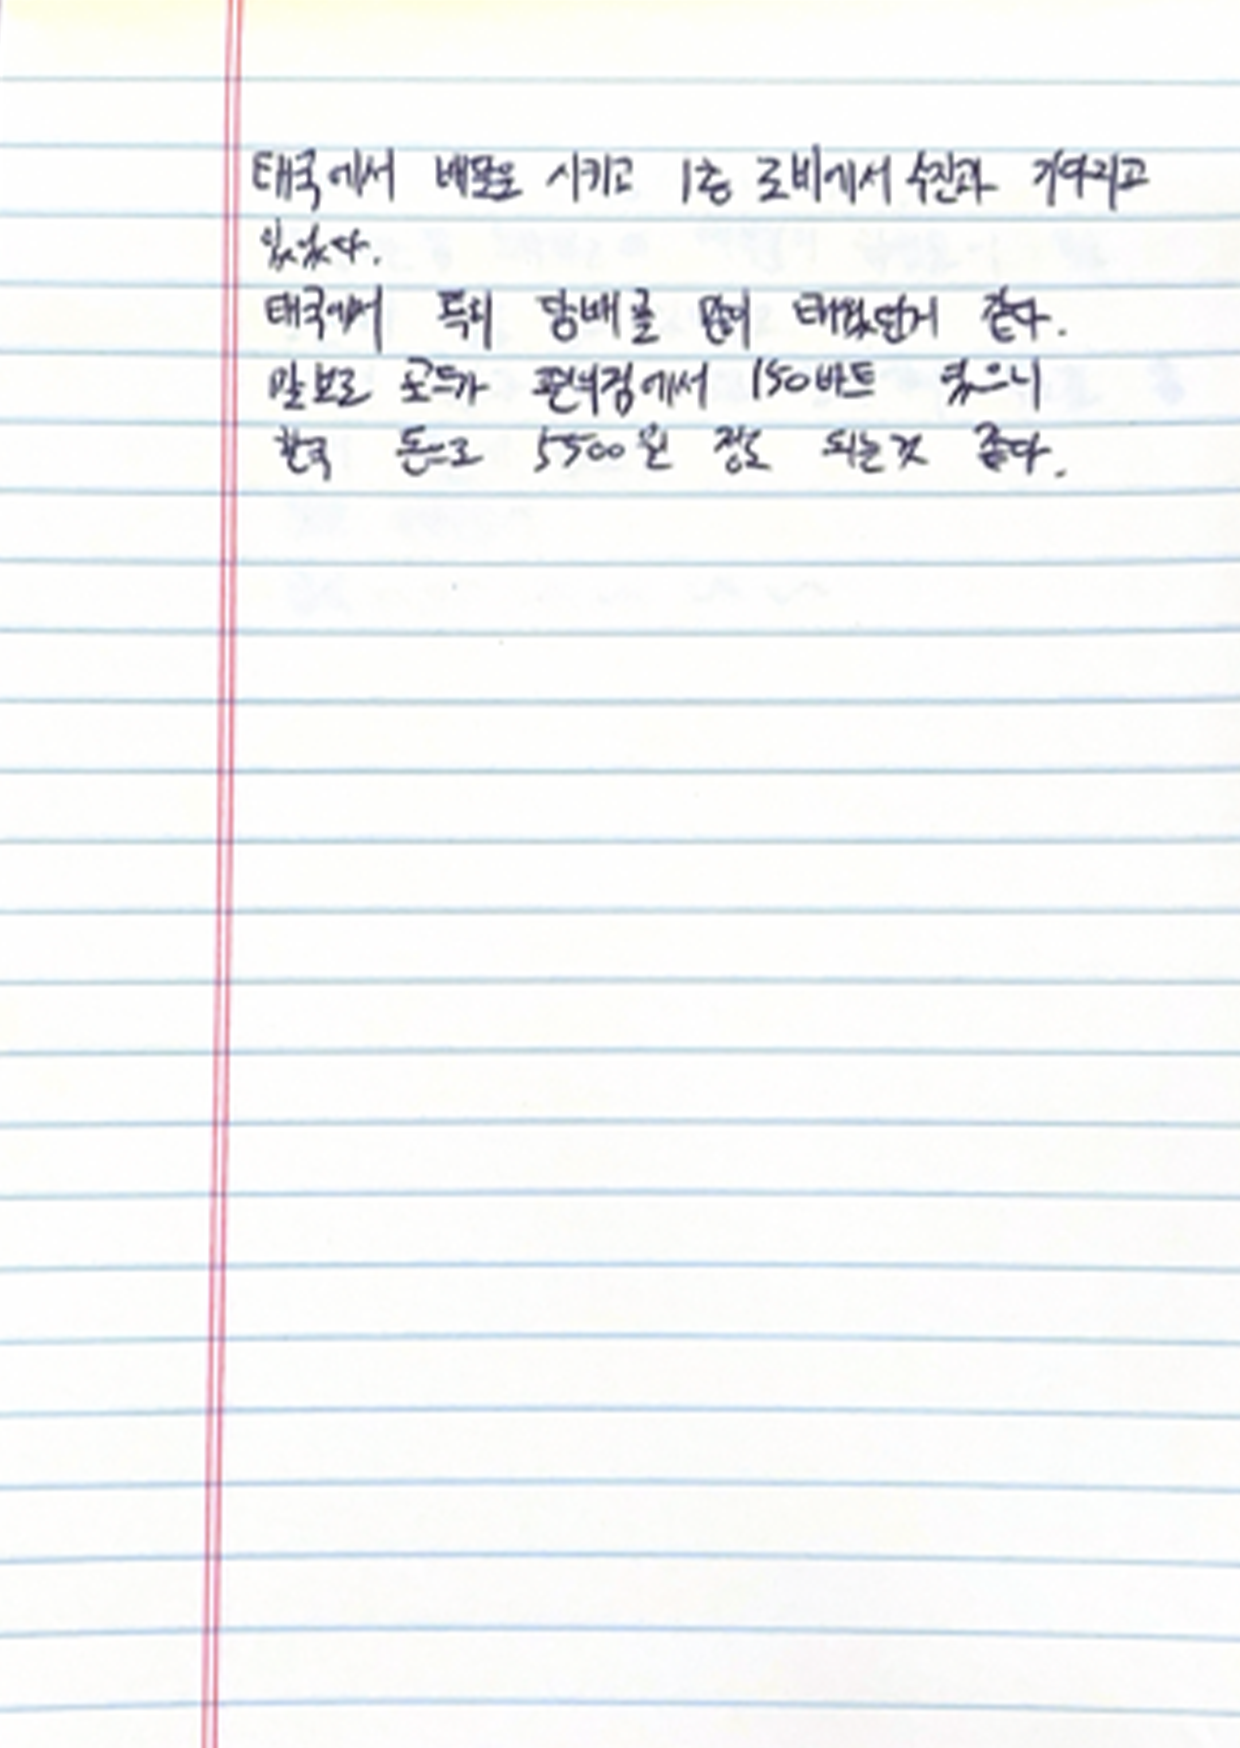 태국에서 배달을 시키고 1층 로비에서 수진과 기다리고
있었다.
태국에서 특히 담배를 많이 태웠던거 같다.
말보로 골드가 편의점에서 150바트 였으니
한국 돈으로 5500원 정도 되는것 같다.